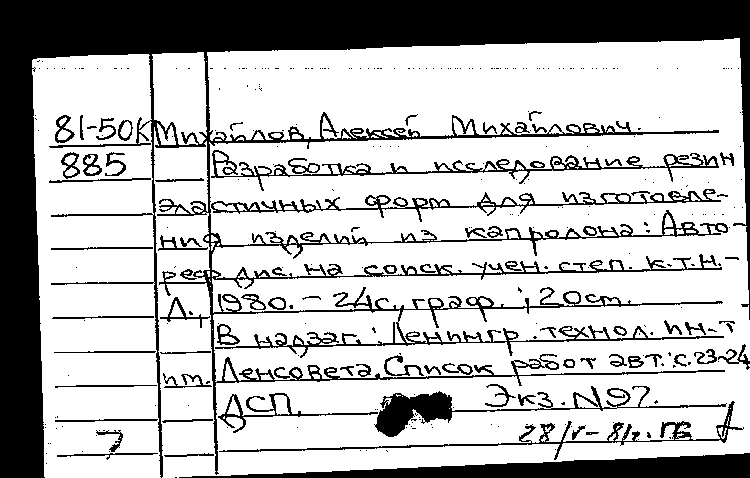 81-50К Михайлов, Алексей Михайлович.
885 Разработка и исследование резин
эластичных форм для изготовле-
ния изделий из капролона: Авто-
реф дис. на соиск. учен. степ. к.т.н.-
Л., 1980. - 24с., граф. ; 20см.
В надзаг.: Ленингр. технол. ин-т
им. Ленсовета. Список работ авт.: с.23-24
ДСП. Экз. N97.
7 28/V-81г. ПВ